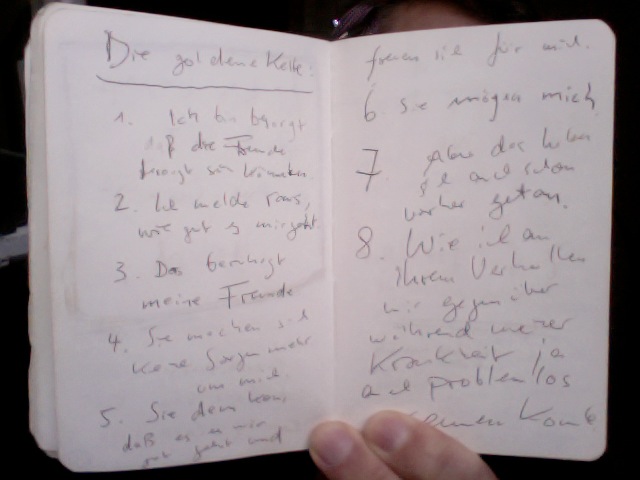 Die goldene Kette:
1. Ich bin besorgt
daß die Freunde
besorgt sein könnten.
2. Ich melde
wie gut es mir geht
3. Das beruhigt
meine Freunde
4. Sie machen sich
keine Sorgen mehr
um mich
5. Sie denken,
daß es mir
gut geht und
freuen sich für mich.
6. Sie mögen mich
7. Aber das haben
sie auch schon
vorher getan.
8. Wie ich an
ihrem Verhalten
mir gegenüber
während meiner
Krankheit ja
auch problemlos
erkennen konnte